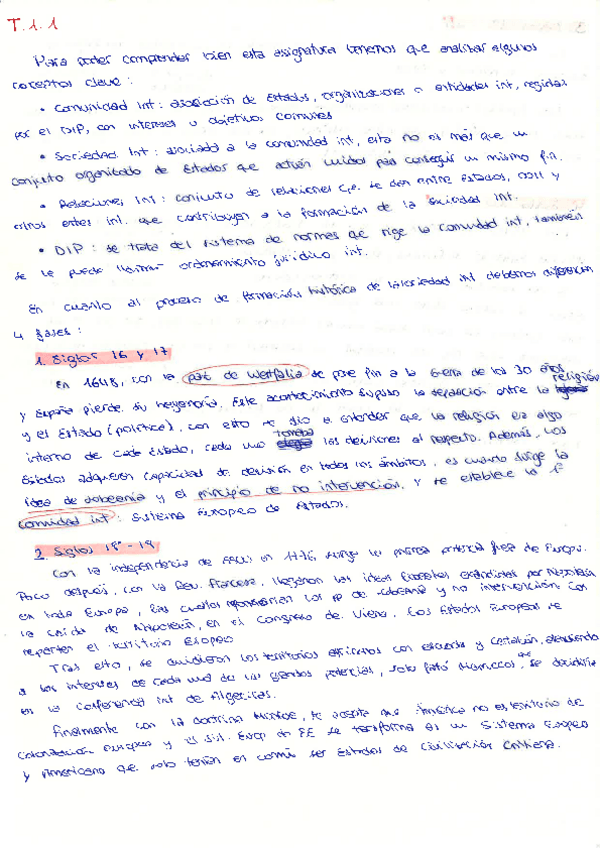 T.1.1
Para poder comprender bien esta asignatura tenemos que analizar algunos
conceptos clave:
• Comunidad Int: asociación de Estados, organizaciones o entidades int, regidas
por el DIP, con intereses u objetivos comunes.
• Sociedad Int: asociado a la comunidad int, esta no es más que un
conjunto organizado de Estados que actúan unidos para conseguir un mismo fin.
• Relaciones Int: conjunto de relaciones que se dan entre Estados, OOII y
otros entes int. que contribuyen a la formación de la sociedad Int.
• DIP: se trata del sistema de normas que rige la comunidad int, también
se le puede llamar ordenamiento jurídico int.
En cuanto al proceso de formación histórica de la sociedad int debemos diferenciar
4 fases:
1. Siglos 16 y 17
En 1648, con la paz de Westfalia se pone fin a la Guerra de los 30 años
y España pierde su hegemonía. Este acontecimiento supuso la separación entre la religión
y el Estado (política), con esto se dio a entender que la religión era algo
interno de cada Estado, cada uno tomaba las decisiones al respecto. Además, los
Estados adquieren capacidad de decisión en todos los ámbitos, es cuando surge la
idea de soberanía y el principio de no intervención, y se establece la 1ª
comunidad int: Sistema Europeo de Estados.
2. Siglos 18 - 19
Con la independencia de EEUU en 1776, surge la primera potencia fuera de Europa.
Poco después, con la Rev. Francesa, llegaron las ideas liberales extendidas por Napoleón
en toda Europa, las cuales los pp de soberanía y no intervención. Con
la caída de Napoleón, en el Congreso de Viena, los Estados Europeos se
reparten el territorio Europeo.
Tras esto, se dividieron los territorios africanos con escuadra y cartabón, atendiendo
a los intereses de cada una de las grandes potencias, solo faltó Marruecos, que se decidiría
en la Conferencia Int de Algeciras.
Finalmente con la doctrina Monroe, se que América no es territorio de
colonización europea y el Sist. Europ de EE se transforma en un Sistema Europeo
y Americano que solo tenían en común ser Estados de Civilización Cristiana.